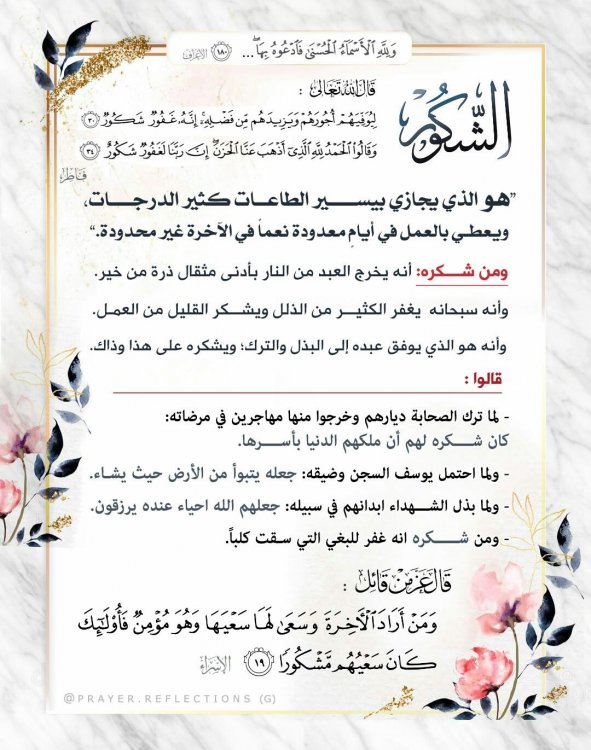 وَلِلَّهِ الْأَسْمَاءُ الْحُسْنَىٰ فَادْعُوهُ بِهَا ... ١٨٠ الأعراف
الشَّكُورُ
قَالَ اللهُ تَعَالَىٰ :
لِيُوَفِّيَهُمْ أُجُورَهُمْ وَيَزِيدَهُم مِّن فَضْلِهِۦٓ إِنَّهُۥ غَفُورٌ شَكُورٌ ٣٠
وَقَالُوا۟ الْحَمْدُ لِلَّهِ الَّذِىٓ أَذْهَبَ عَنَّا الْحَزَنَ إِنَّ رَبَّنَا لَغَفُورٌ شَكُورٌ ٣٤
فاطر
”هو الذي يجازي بيسير الطاعات كثير الدرجات،
ويعطي بالعمل في أيامٍ معدودة نعماً في الآخرة غير محدودة.“
ومن شكره: أنه يخرج العبد من النار بأدنى مثقال ذرة من خير.
وأنه سبحانه يغفر الكثير من الذلل ويشكر القليل من العمل.
وأنه هو الذي يوفق عبده إلى البذل والترك؛ ويشكره على هذا وذاك.
قالوا :
- لما ترك الصحابة ديارهم وخرجوا منها مهاجرين في مرضاته:
كان شكره لهم أن ملكهم الدنيا بأسرها.
- ولما احتمل يوسف السجن وضيقه: جعله يتبوأ من الأرض حيث يشاء.
- ولما بذل الشهداء ابدانهم في سبيله: جعلهم الله احياء عنده يرزقون.
- ومن شكره انه غفر للبغي التي سقت كلباً.
قَالَ عَزَّ مِنْ قَائِل :
وَمَنْ أَرَادَ الْآخِرَةَ وَسَعَىٰ لَهَا سَعْيَهَا وَهُوَ مُؤْمِنٌ فَأُو۟لَٰٓئِكَ
كَانَ سَعْيُهُم مَّشْكُورًا ١٩ الإسراء
@PRAYER.REFLECTIONS (G)